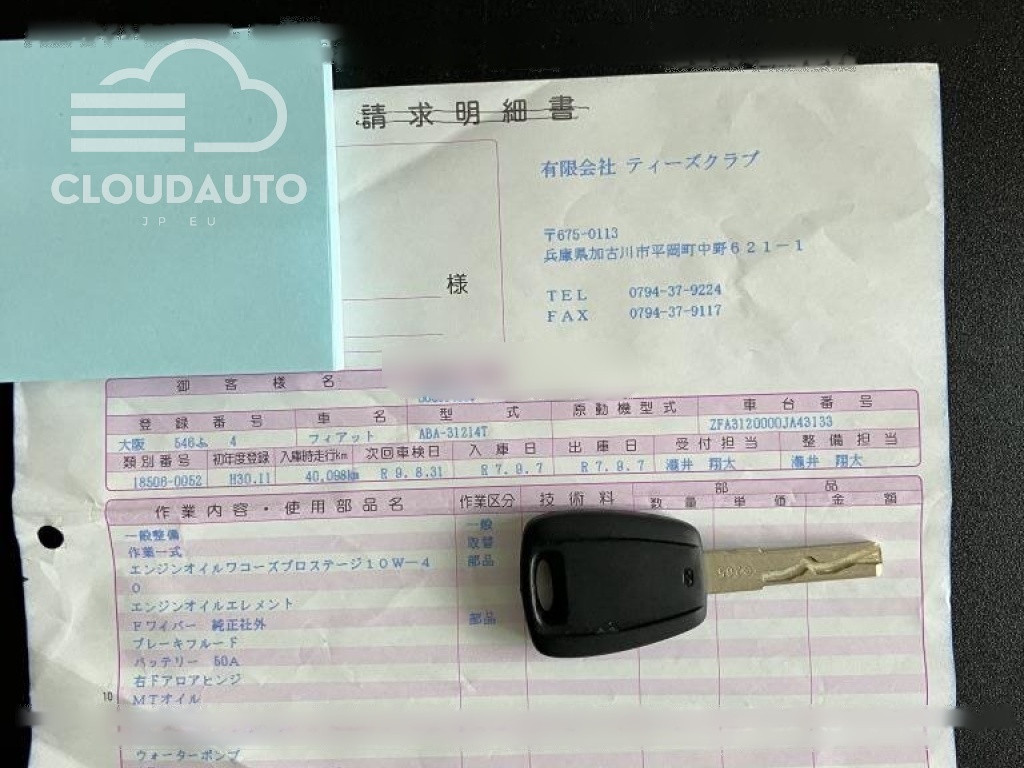 CLOUDAUTO
JP EU
請求明細書
有限会社 ティーズクラブ
〒675-0113
兵庫県加古川市平岡町中野６２１－１
様
ＴＥＬ 0794-37-9224
ＦＡＸ 0794-37-9117
御客様名
登録番号 車名 型式 原動機型式 車台番号
大阪 546ふ 4 フィアット ABA-31214T ZFA3120000JA43133
類別番号 初年度登録 入庫時走行km 次回車検日 入庫日 出庫日 受付担当 整備担当
18506-0052 H30.11 40,098km R 9.8.31 R 7.9.7 R 7.9.7 瀧井 翔太 瀧井 翔太
作業内容・使用部品名 作業区分 技術料 部品
数量 単価 金額
一般整備 一般
作業一式 取替
エンジンオイルワコーズプロステージ１０Ｗ－４ 部品
０
エンジンオイルエレメント
Ｆワイパー 純正社外 部品
ブレーキフルード
バッテリー 50A
右ドアロアヒンジ
10 ＭＴオイル
ウォーターポンプ